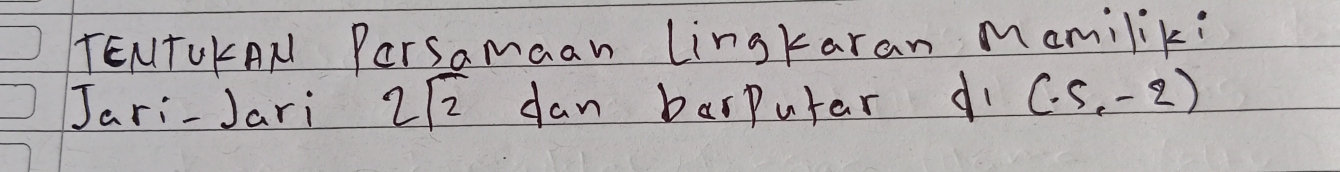 TENTUKAN Persamaan lingkaran Memiliki
Jari-Jari 2√2 dan berputar di (-5, -2)